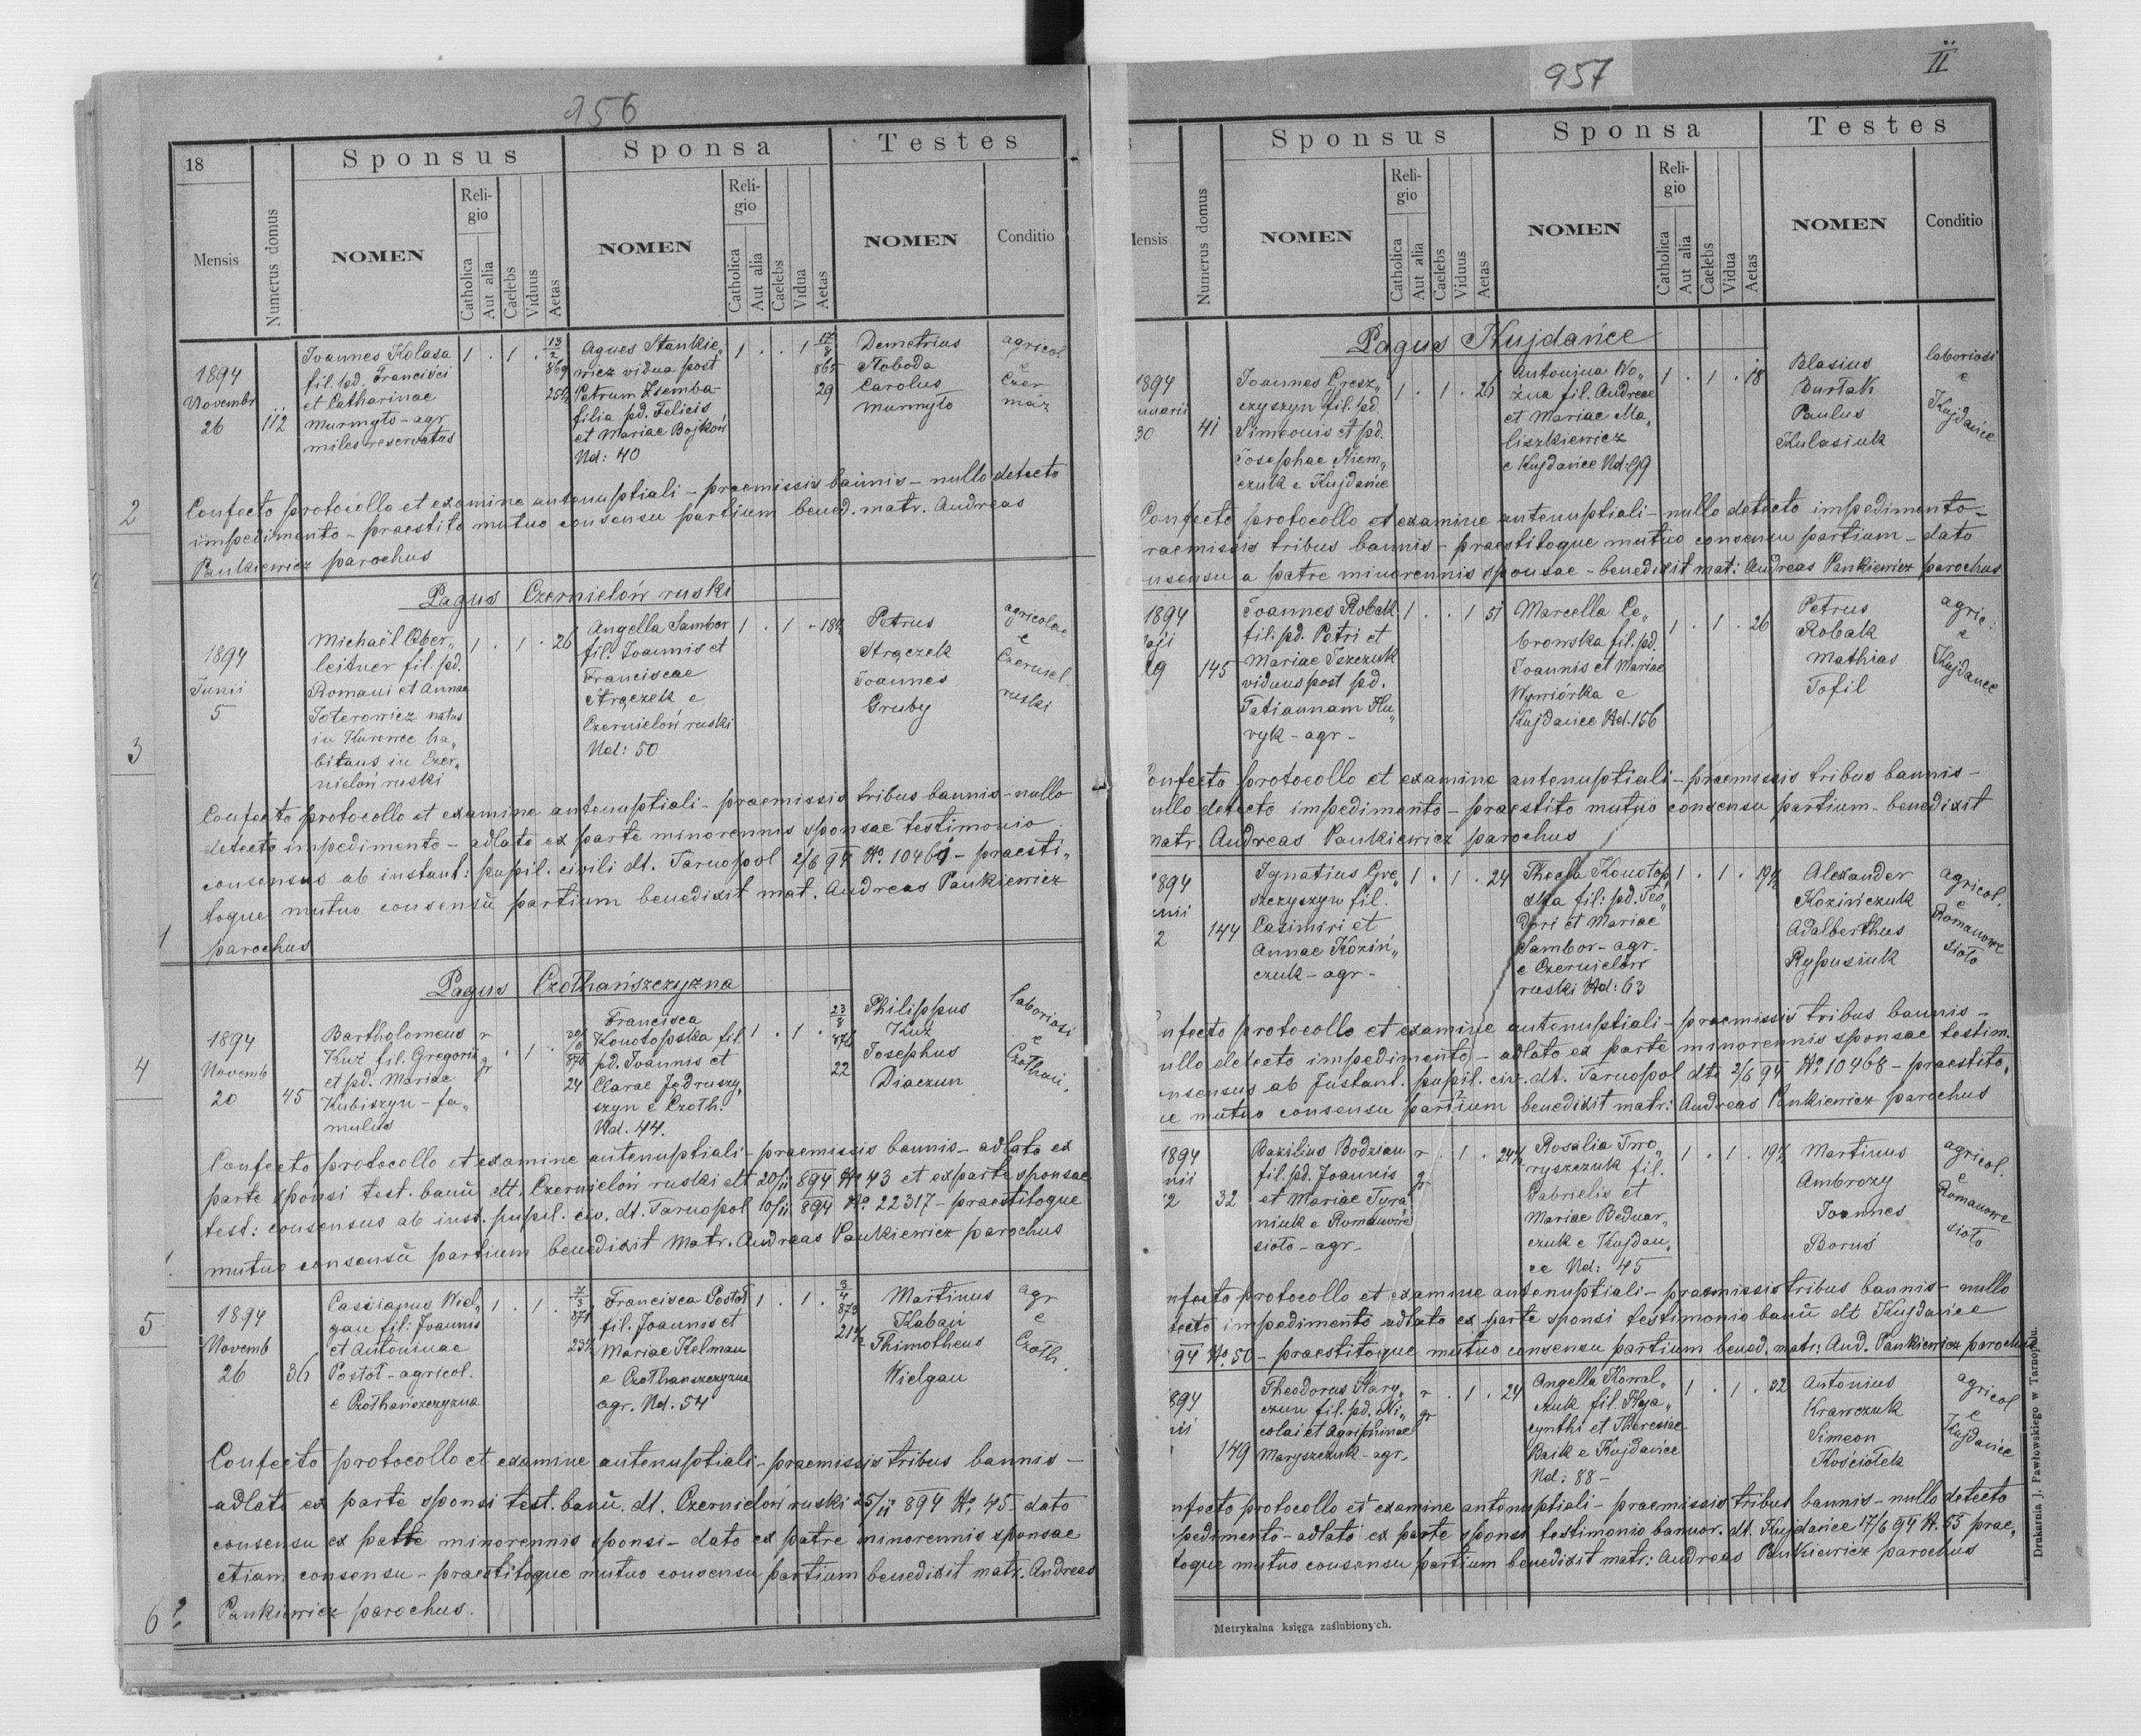 956
18
Sponsus
Sponsa
Testes
Mensis
Numerus domus
NOMEN
Religio
Catholica
Aut alia
Caelebs
Viduus
Aetas
NOMEN
Religio
Catholica
Aut alia
Caelebs
Vidua
Aetas
NOMEN
Conditio
1894
Novembr
26
112
Joannes Kolasa
fil. pd. Francisci
et Catharinae
Murmyto - agr
miles reservatus
1 . 1 .
13/2
869
25 1/2
Agnes Stankie„
wicz vidua post
Petrum Dzemba-
filia pd. Felicis
et Mariae Bojków
Nd: 40
1 . . 1
17/8
865
29
Demetrius
Stoboda
Carolus
Murmyto
agricol
e
Czer
maz
2
Confecto protocollo et examine antenuptiali - praemissis bannis - nullo detecto
impedimento - praestito mutuo consensu partium bened. matr. Andreas
Pankiewicz parochus
Pagus Czernielów ruski
1894
Junii
5
Michaël Ober„
leitner fil. pd.
Romani et Annae
Toterowicz natus
in Kurowce ha„
bitans in Czer„
nielów ruski
1 . 1 . 26
Angella Sambor
fil. Joannis et
Franciscae
Strączek e
Czernielów ruski
Nd: 50
1 . 1 . 18 1/2
Petrus
Strączek
Joannes
Gruby
agricolae
e
Czerniel.
ruski
3
Confecto protocollo et examine antenuptiali - praemissis tribus bannis - nullo
detecto impedimento - adlato ex parte minorennis sponsae testimonio
consensus ab instant: pupil. civili dt. Tarnopol 2/6 94 No. 10461 - praesti„
toque mutuo consensu partium benedixit mat. Andreas Pankiewicz
1
parochus
Pagus Czołhańszczyzna
4
1894
Novemb
20
45
Bartholomeus
Kuź fil. Gregorii
et pd. Mariae
Kubiszyn - fa„
mulus
r
gr
. 1 .
870
24
Francisca
Konotopska fil.
pd. Joannis et
Clarae Jędruszy„
szyn e Czołh.
Nd. 44.
1 . 1 .
23/8
872
22
Philippus
Kuź
Josephus
Diaczun
laboriosi
e
Czołhań.
Confecto protocollo et examine antenuptiali - praemissis bannis - adlato ex
parte sponsi test. bann. dt. Czernielów ruski dt 20/11 894 No. 43 et ex parte sponsae
test: consensus ab inst. pupil. civ. dt. Tarnopol 10/11 894 No. 22317 - praestitoque
mutuo consensu partium benedixit Matr. Andreas Pankiewicz parochus
5
1894
Novemb
26
36
Cassianus Wiel„
gan fil: Joannis
et Antoninae
Postoł - agricol.
e Czołhańszczyzna
1 . 1 .
7/3
871
23 1/2
Francisca Postoł
fil. Joannis et
Mariae Kelman
e Czołhanszczyzna
agr. Nd. 54
1 . 1 .
3/4
873
21 1/2
Martinus
Kaban
Thimotheus
Wielgan
agr
e
Czołh.
Confecto protocollo et examine antenuptiali - praemissis tribus bannis -
adlato ex parte sponsi test. bann. dt. Czernielów ruski 25/11 894 No. 45 - dato
consensu ex patre minorennis sponsi - dato ex patre minorennis sponsae
etiam consensu - praestitoque mutuo consensu partium benedixit matr. Andreas
6
Pankiewicz parochus.
957
II
Sponsus
Sponsa
Testes
Mensis
Numerus domus
NOMEN
Religio
Catholica
Aut alia
Caelebs
Viduus
Aetas
NOMEN
Religio
Catholica
Aut alia
Caelebs
Vidua
Aetas
NOMEN
Conditio
Pagus Kujdańce
1894
nuarii
30
41
Joannes Gresz„
czyszyn fil. pd
Simeonis et pd.
Josephae Niem„
czuk e Kujdańce
1 . 1 . 26
Antonina Wo„
źna fil. Andreae
et Mariae Ma„
liszkiewicz
e Kujdańce Nd: 99
1 . 1 . 18
Blasius
Burtak
Paulus
Kulasiuk
laboriosi
e
Kujdańce
Confecto protocollo et examine antenuptiali - nullo detecto impedimento -
raemissis tribus bannis - praestitoque mutuo consensu partium - dato
nsensu a patre minorennis sponsae - benedixit mat: Andreas Pankiewicz parochus
1894
aji
29
145
Joannes Robak
fil. pd. Petri et
Mariae Iszczuk
viduus post pd.
Tatiannam Hu„
ryk - agr -
1 . . 1 51
Marcella Ce„
browska fil. pd.
Joannis et Mariae
Wywiórka e
Kujdańce Nd. 156
1 . 1 . 26
Petrus
Robak
Mathias
Tofil
agric:
e
Kujdańce
onfecto protocollo et examine antenuptiali - praemissis tribus bannis -
ullo detecto impedimento - praestito mutuo consensu partium - benedixit
matr. Andreas Pankiewicz parochus
1894
unii
2
144
Ignatius Gre„
szczyszyn fil.
Casimiri et
Annae Koziń„
czuk - agr -
1 . 1 . 24
Thecla Konotop„
ska fil: pd. Teo„
dori et Mariae
Sambor - agr -
e Czernielów
ruski Nd: 63
1 . 1 . 19 1/2
Alexander
Kozińczuk
Adalberthus
Rypusiuk
agricol.
e
Romanowe
sioło
nfecto protocollo et examine antenuptiali - praemissis tribus bannis -
ullo detecto impedimento - adlato ex parte minorennis sponsae testim.
onsensus ab Instant. pupil. civ. dt. Tarnopol dto 2/6 94 No. 10468 - praestito„
ue mutuo consensu partium benedixit matr: Andreas Pankiewicz parochus
1894
nii
2
32
Bazilius Bodzian
fil. pd. Joannis
et Mariae Tyra
niuk e Romanowe
sioło - agr -
r
gr
. 1 . 24 1/2
Rosalia Two„
ryszczuk fil.
Gabrielis et
Mariae Bednar„
czuk e Kujdań„
ce Nd: 45
1 . 1 . 19 1/2
Martinus
Ambrozy
Joannes
Boruś
agricol.
e
Romanowe
sioło
nfecto protocollo et examine antenuptiali - praemissis tribus bannis - nullo
tecto impedimento adlato ex parte sponsi testimonio bann dt Kujdańce
94 No. 50 - praestitoque mutuo consensu partium bened. matr: And. Pankiewicz parochus
894
nii
149
Theodorus Hary„
czun fil. pd. Ni„
colai et Agriphinae
Maryszczuk - agr.
r
gr
. 1 . 24
Angella Kowal„
czuk fil. Hya„
cynthi et Theresiae
Baik e Kujdańce
Nd: 88 -
1 . 1 . 32
Antonius
Krawczuk
Simeon
Kościołek
agricol
e
Kujdańce
nfecto protocollo et examine antenuptiali - praemissis tribus bannis - nullo detecto
pedimento - adlato ex parte sponsi testimonio bannor. dt. Kujdańce 17/6 94 N. 53 prae„
toque mutuo consensu partium benedixit matr: Andreas Pankiewicz parochus
Metrykalna księga zaślubionych.
Drukarnia J. Pawłowskiego w Tarnopolu.